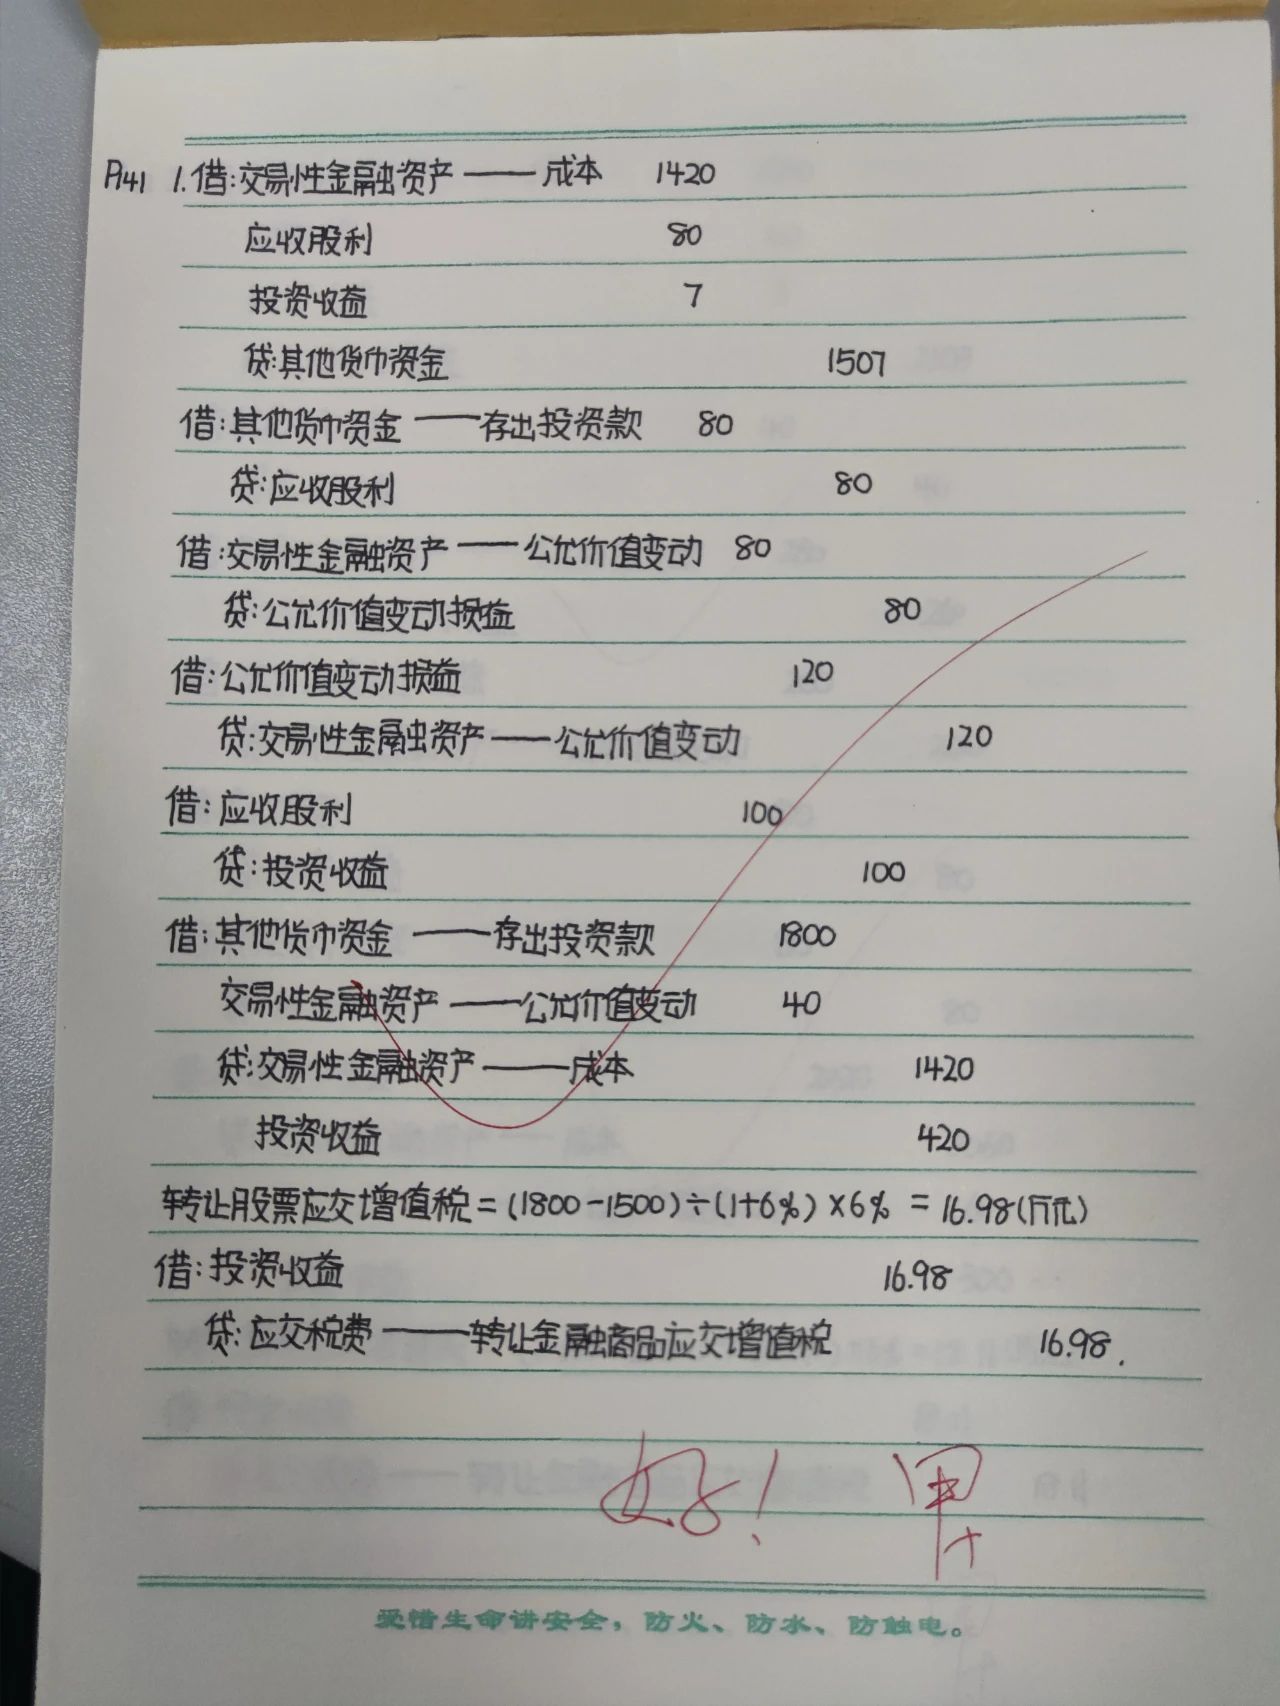 P141 1.借:交易性金融资产——成本 1420
应收股利 80
投资收益 7
贷:其他货币资金 1507
借:其他货币资金——存出投资款 80
贷:应收股利 80
借:交易性金融资产——公允价值变动 80
贷:公允价值变动损益 80
借:公允价值变动损益 120
贷:交易性金融资产——公允价值变动 120
借:应收股利 100
贷:投资收益 100
借:其他货币资金——存出投资款 1800
交易性金融资产——公允价值变动 40
贷:交易性金融资产——成本 1420
投资收益 420
转让股票应交增值税=(1800-1500)÷(1+6%)×6% = 16.98(万元)
借:投资收益 16.98
贷:应交税费——转让金融商品应交增值税 16.98.
好! 甲+
爱惜生命讲安全,防火、防水、防触电。